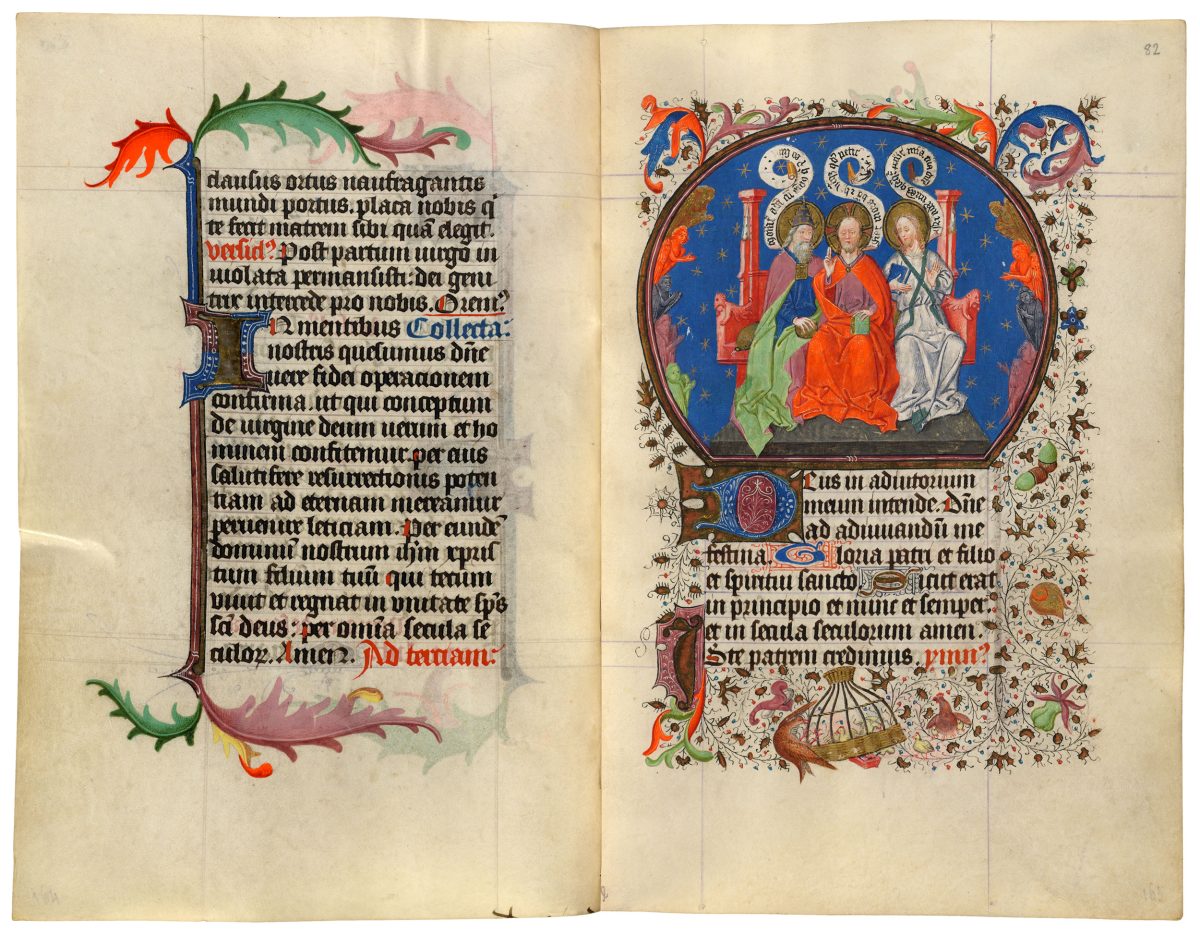 clausus ortus naufragantis
mundi portus. placa nobis q̄
te fecit matrem sibi quā elegit.
versicꝰ Post partum uirgo in
uiolata permansisti: dei geni
trix intercede pro nobis. Oremꝰ
IN mentibus Collecta:
nostris quesumus dn̄e
uere fidei operacionem
confirma. ut qui conceptum
de uirgine deum uerum et ho
minem confitemur. per eius
salutifere resurrectionis poten
tiam ad eternam mereamur
peruenire leticiam. Per eundē
dominū nostrum ih̄m xpris
tum filium tuū qui tecum
uiuit et regnat in unitate sp̄s
sc̄i deus: per om̄ia secula se
culoꝝ. Amen. Ad terciam:
82
DEus in adiutorium
meum intende. Dn̄e
ad adiuuandū me
festina. Gloria patri et filio
et spiritui sancto. Sicut erat
in principio et nunc et semper.
et in secula seculorum amen.
Iste patrem credimus. ymnꝰ